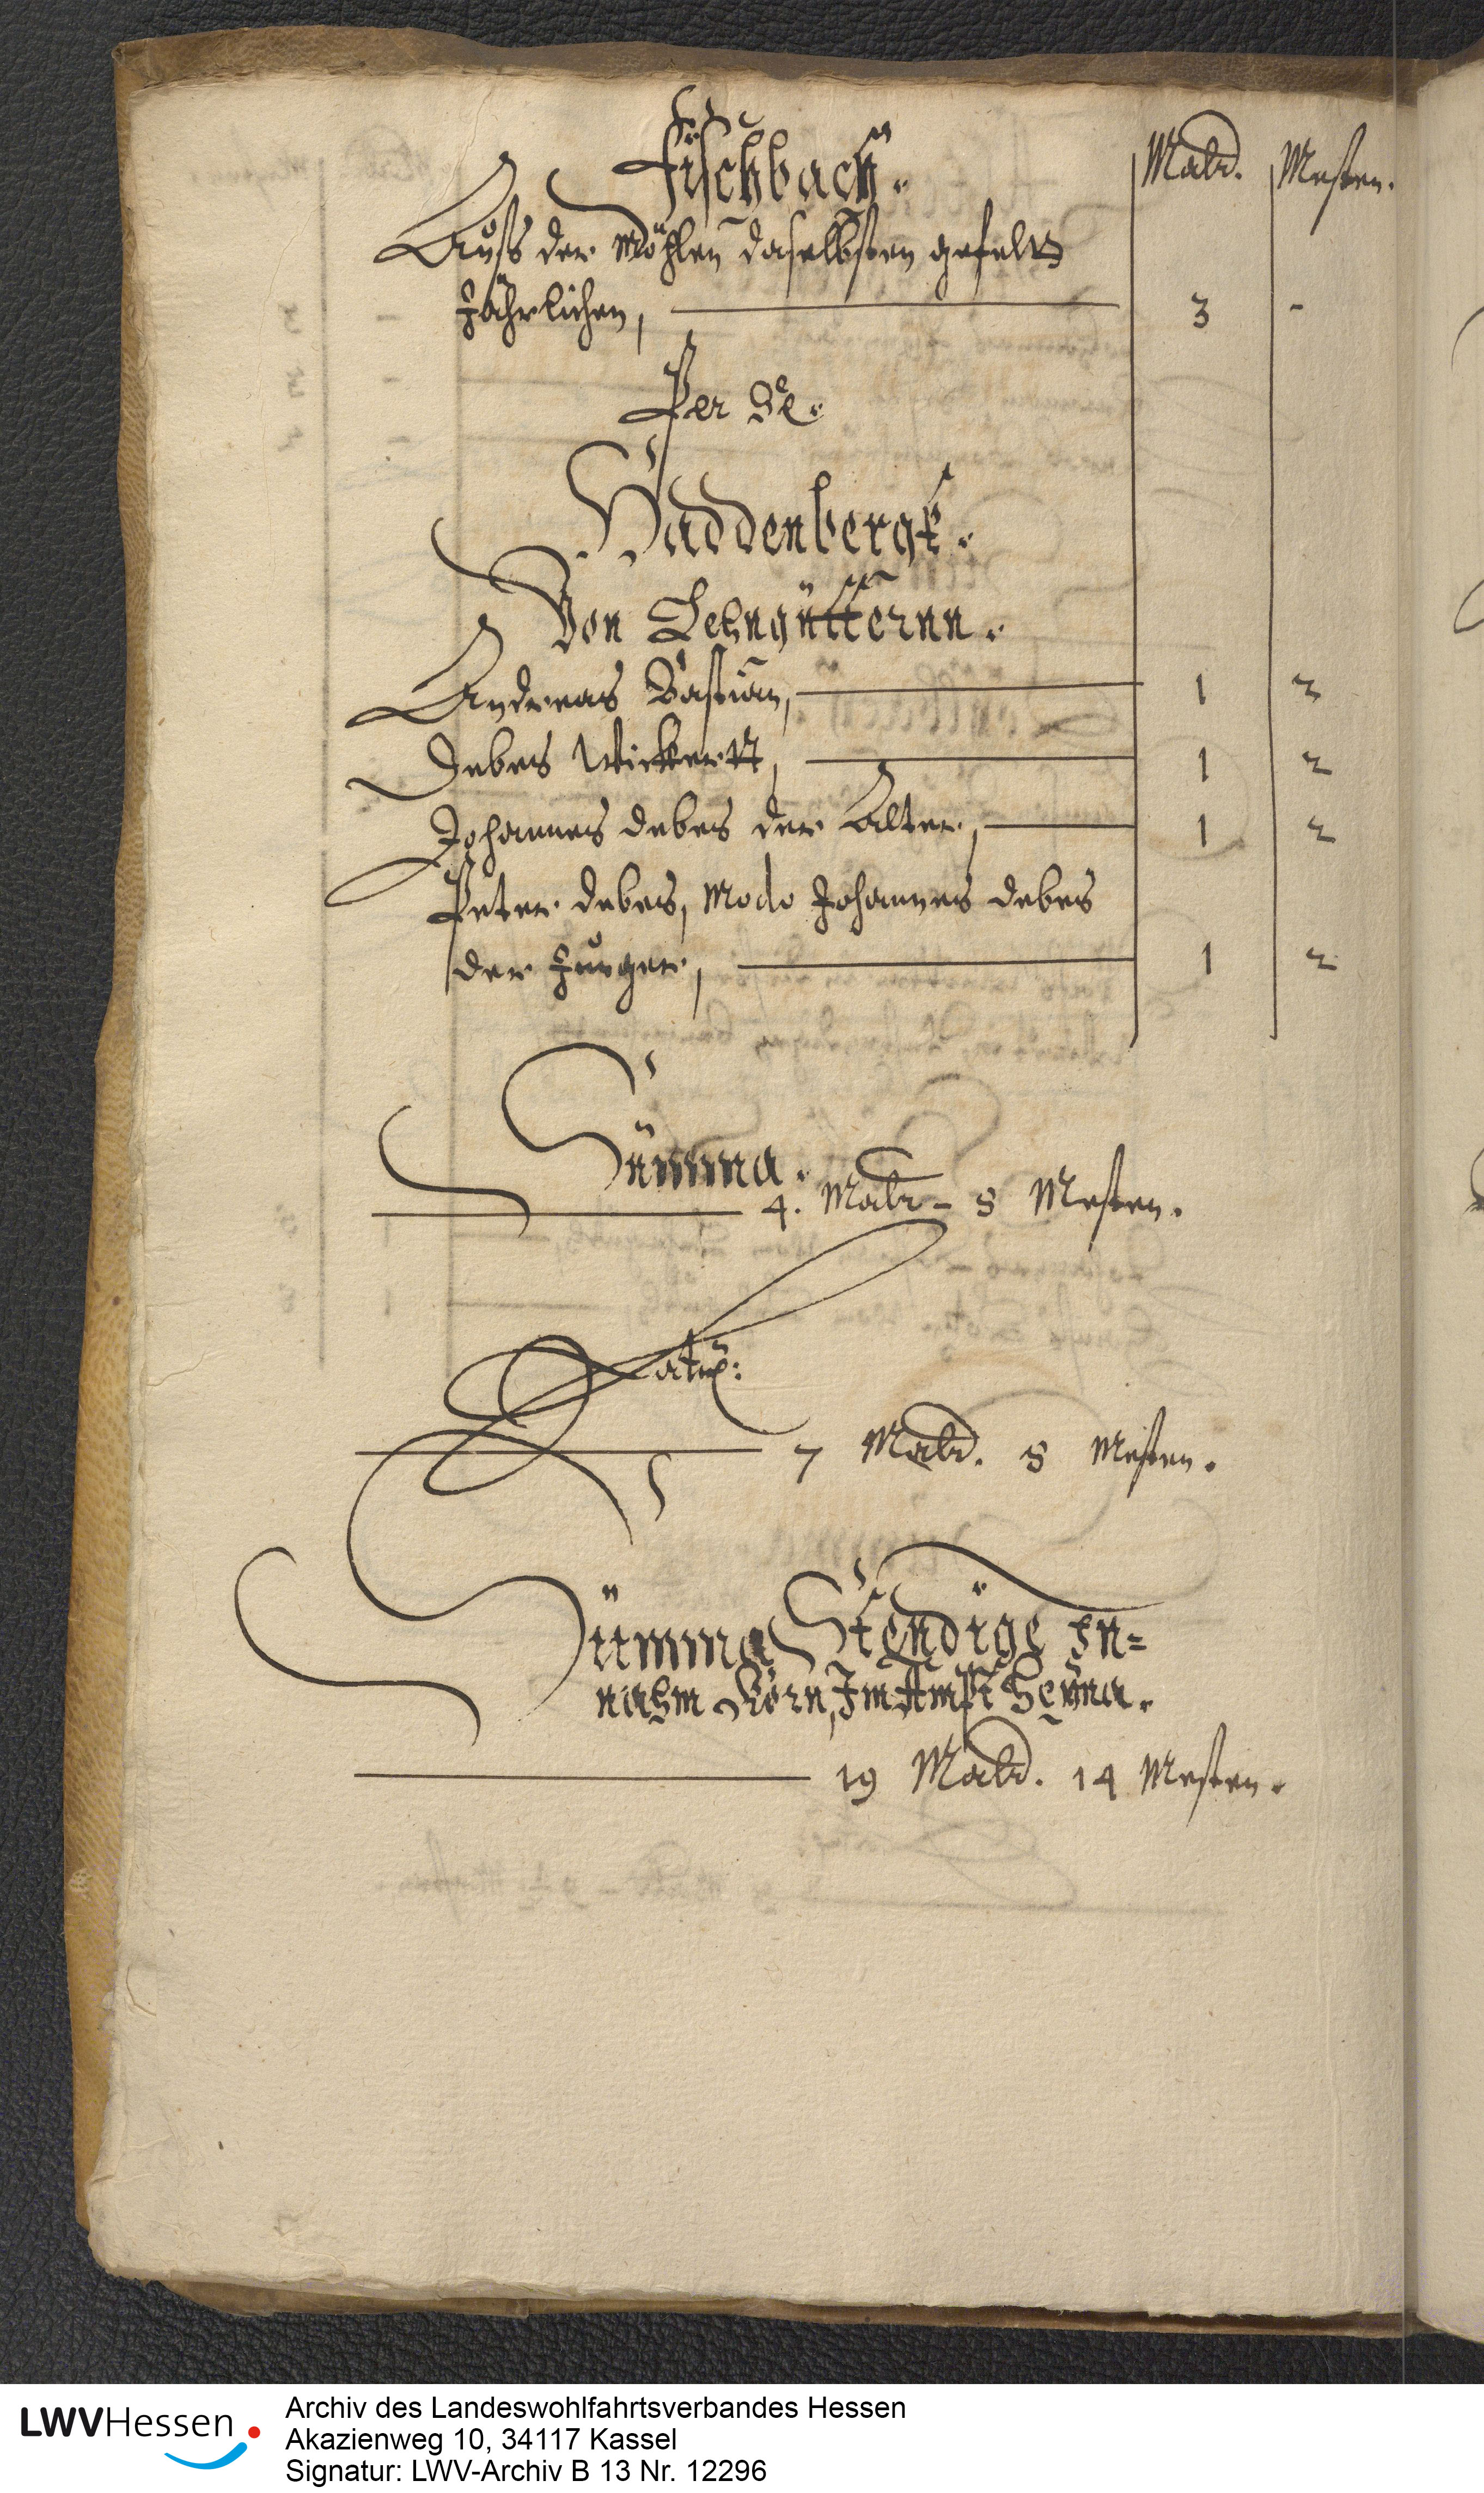 Fischbach. Malr. Mesten.
Auß der Möhlen daselbsten gefelts
Jährlichen, 3 -
Per Se.
Haddenbergk.
Von Lehngütternn.
Andreas Bastian, 1 2
Debes Wickertt, 1 2
Johannes Debes der Alter, 1 2
Peter Debes, modo Johannes Debes
der Junger, 1 2
Summa.
4. Malr - 8 Mesten.
Latus:
7 Malr. 8 Mesten.
Summa Stendige In=
nahm Korn, Im Ampt Heyna.
19 Malr. 14 Mesten.
LWVHessen
Archiv des Landeswohlfahrtsverbandes Hessen
Akazienweg 10, 34117 Kassel
Signatur: LWV-Archiv B 13 Nr. 12296